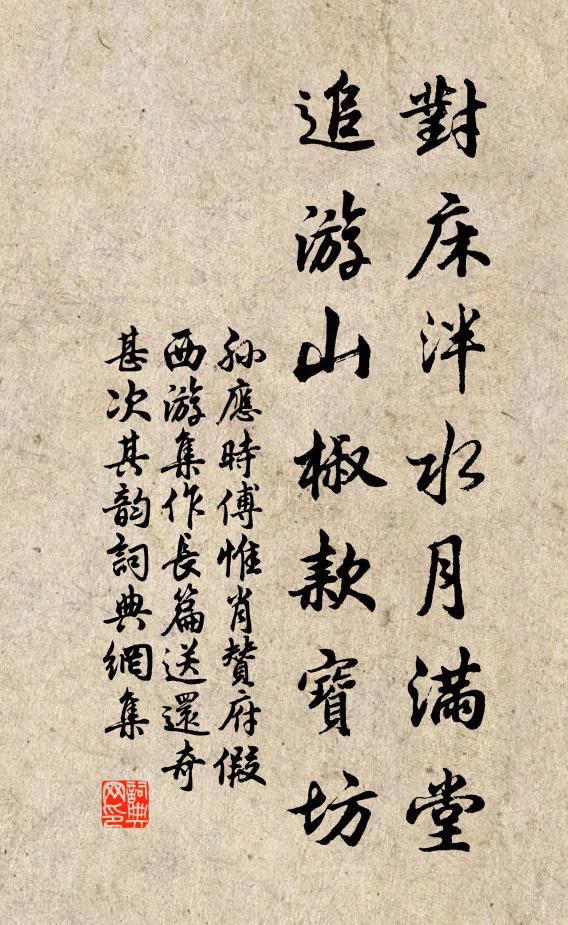 對床泮水月滿堂
追游山椒款寶坊
孫應時傅惟肖贊府假
西游集作長篇送還奇
甚次其韵詞典網集
詞典网印